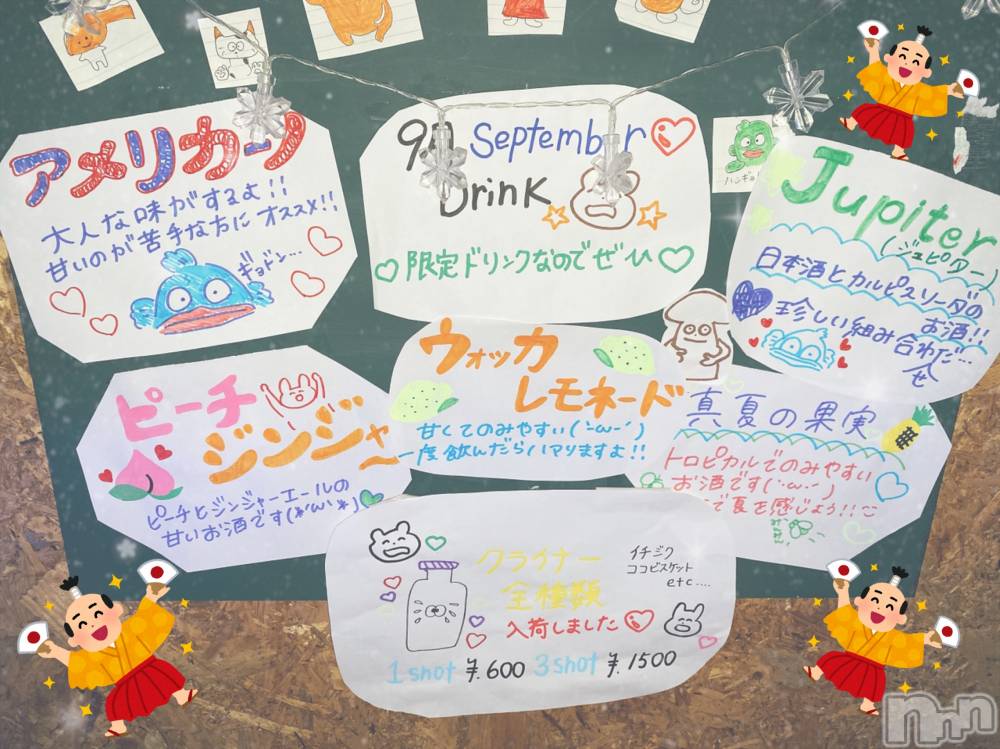 アメリカーノ
大人な味がするよ!!
甘いのが苦手な方にオススメ!!
ギョドン…
9月 September
Drink
限定ドリンクなのでぜひ
ハンギョ
Jupiter
(ジュピター)
日本酒とカルピスソーダの
お酒!!
珍しい組み合わせだ…
ピーチ
ジンジャー
ピーチとジンジャーエールの
甘いお酒です(*'ω'*)
ウォッカ
レモネード
甘くてのみやすい(´-ω-`)
一度飲んだらハマりますよ!!
真夏の果実
トロピカルでのみやすい
お酒です(´-ω-`)
で夏を感じよう!!
クライナー
全種類
入荷しました
イチジク
ココビスケット
etc....
1shot ¥.600 3shot ¥.1500
nnn